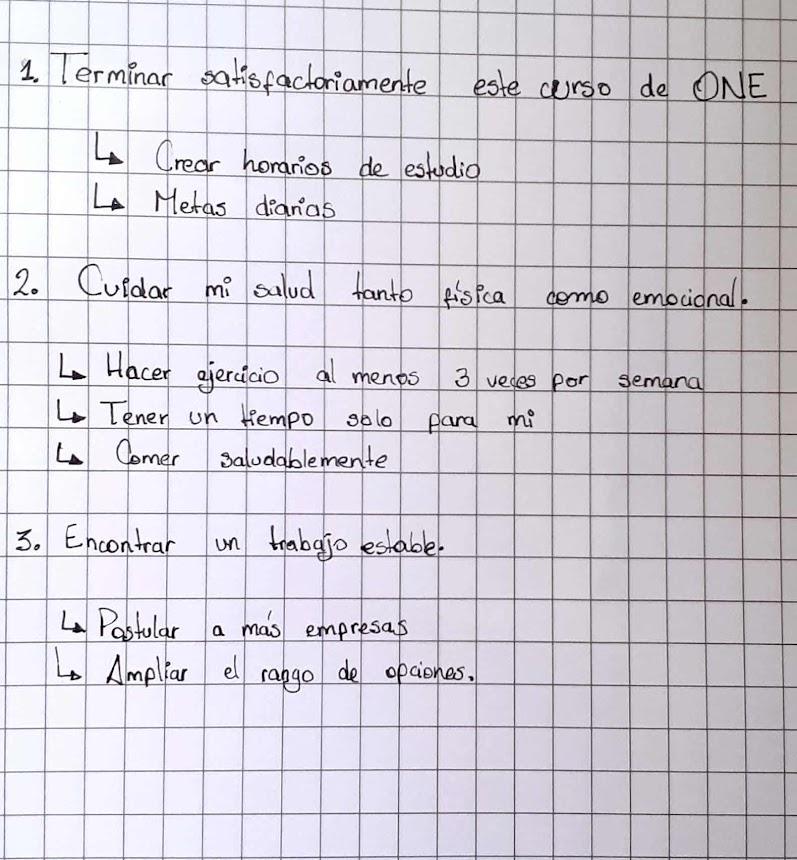 1. Terminar satisfactoriamente este curso de ONE
↳ Crear horarios de estudio
↳ Metas diarias
2. Cuidar mi salud tanto física como emocional.
↳ Hacer ejercicio al menos 3 veces por semana
↳ Tener un tiempo solo para mi
↳ Comer saludablemente
3. Encontrar un trabajo estable.
↳ Postular a más empresas
↳ Ampliar el rango de opciones.